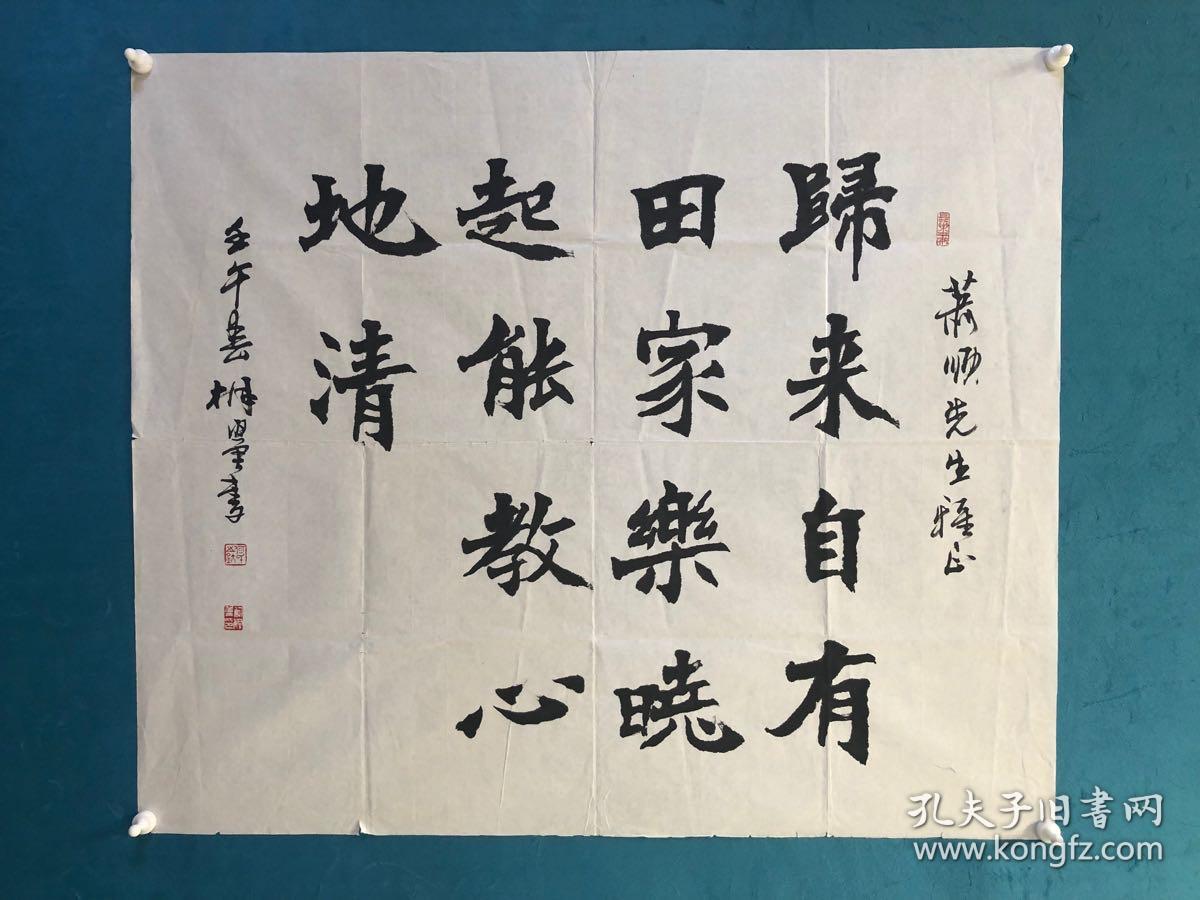 萧顺先生雅正
歸来自有
田家樂曉
起能教心
地清
壬午春
書
孔夫子旧書网
www.kongfz.com